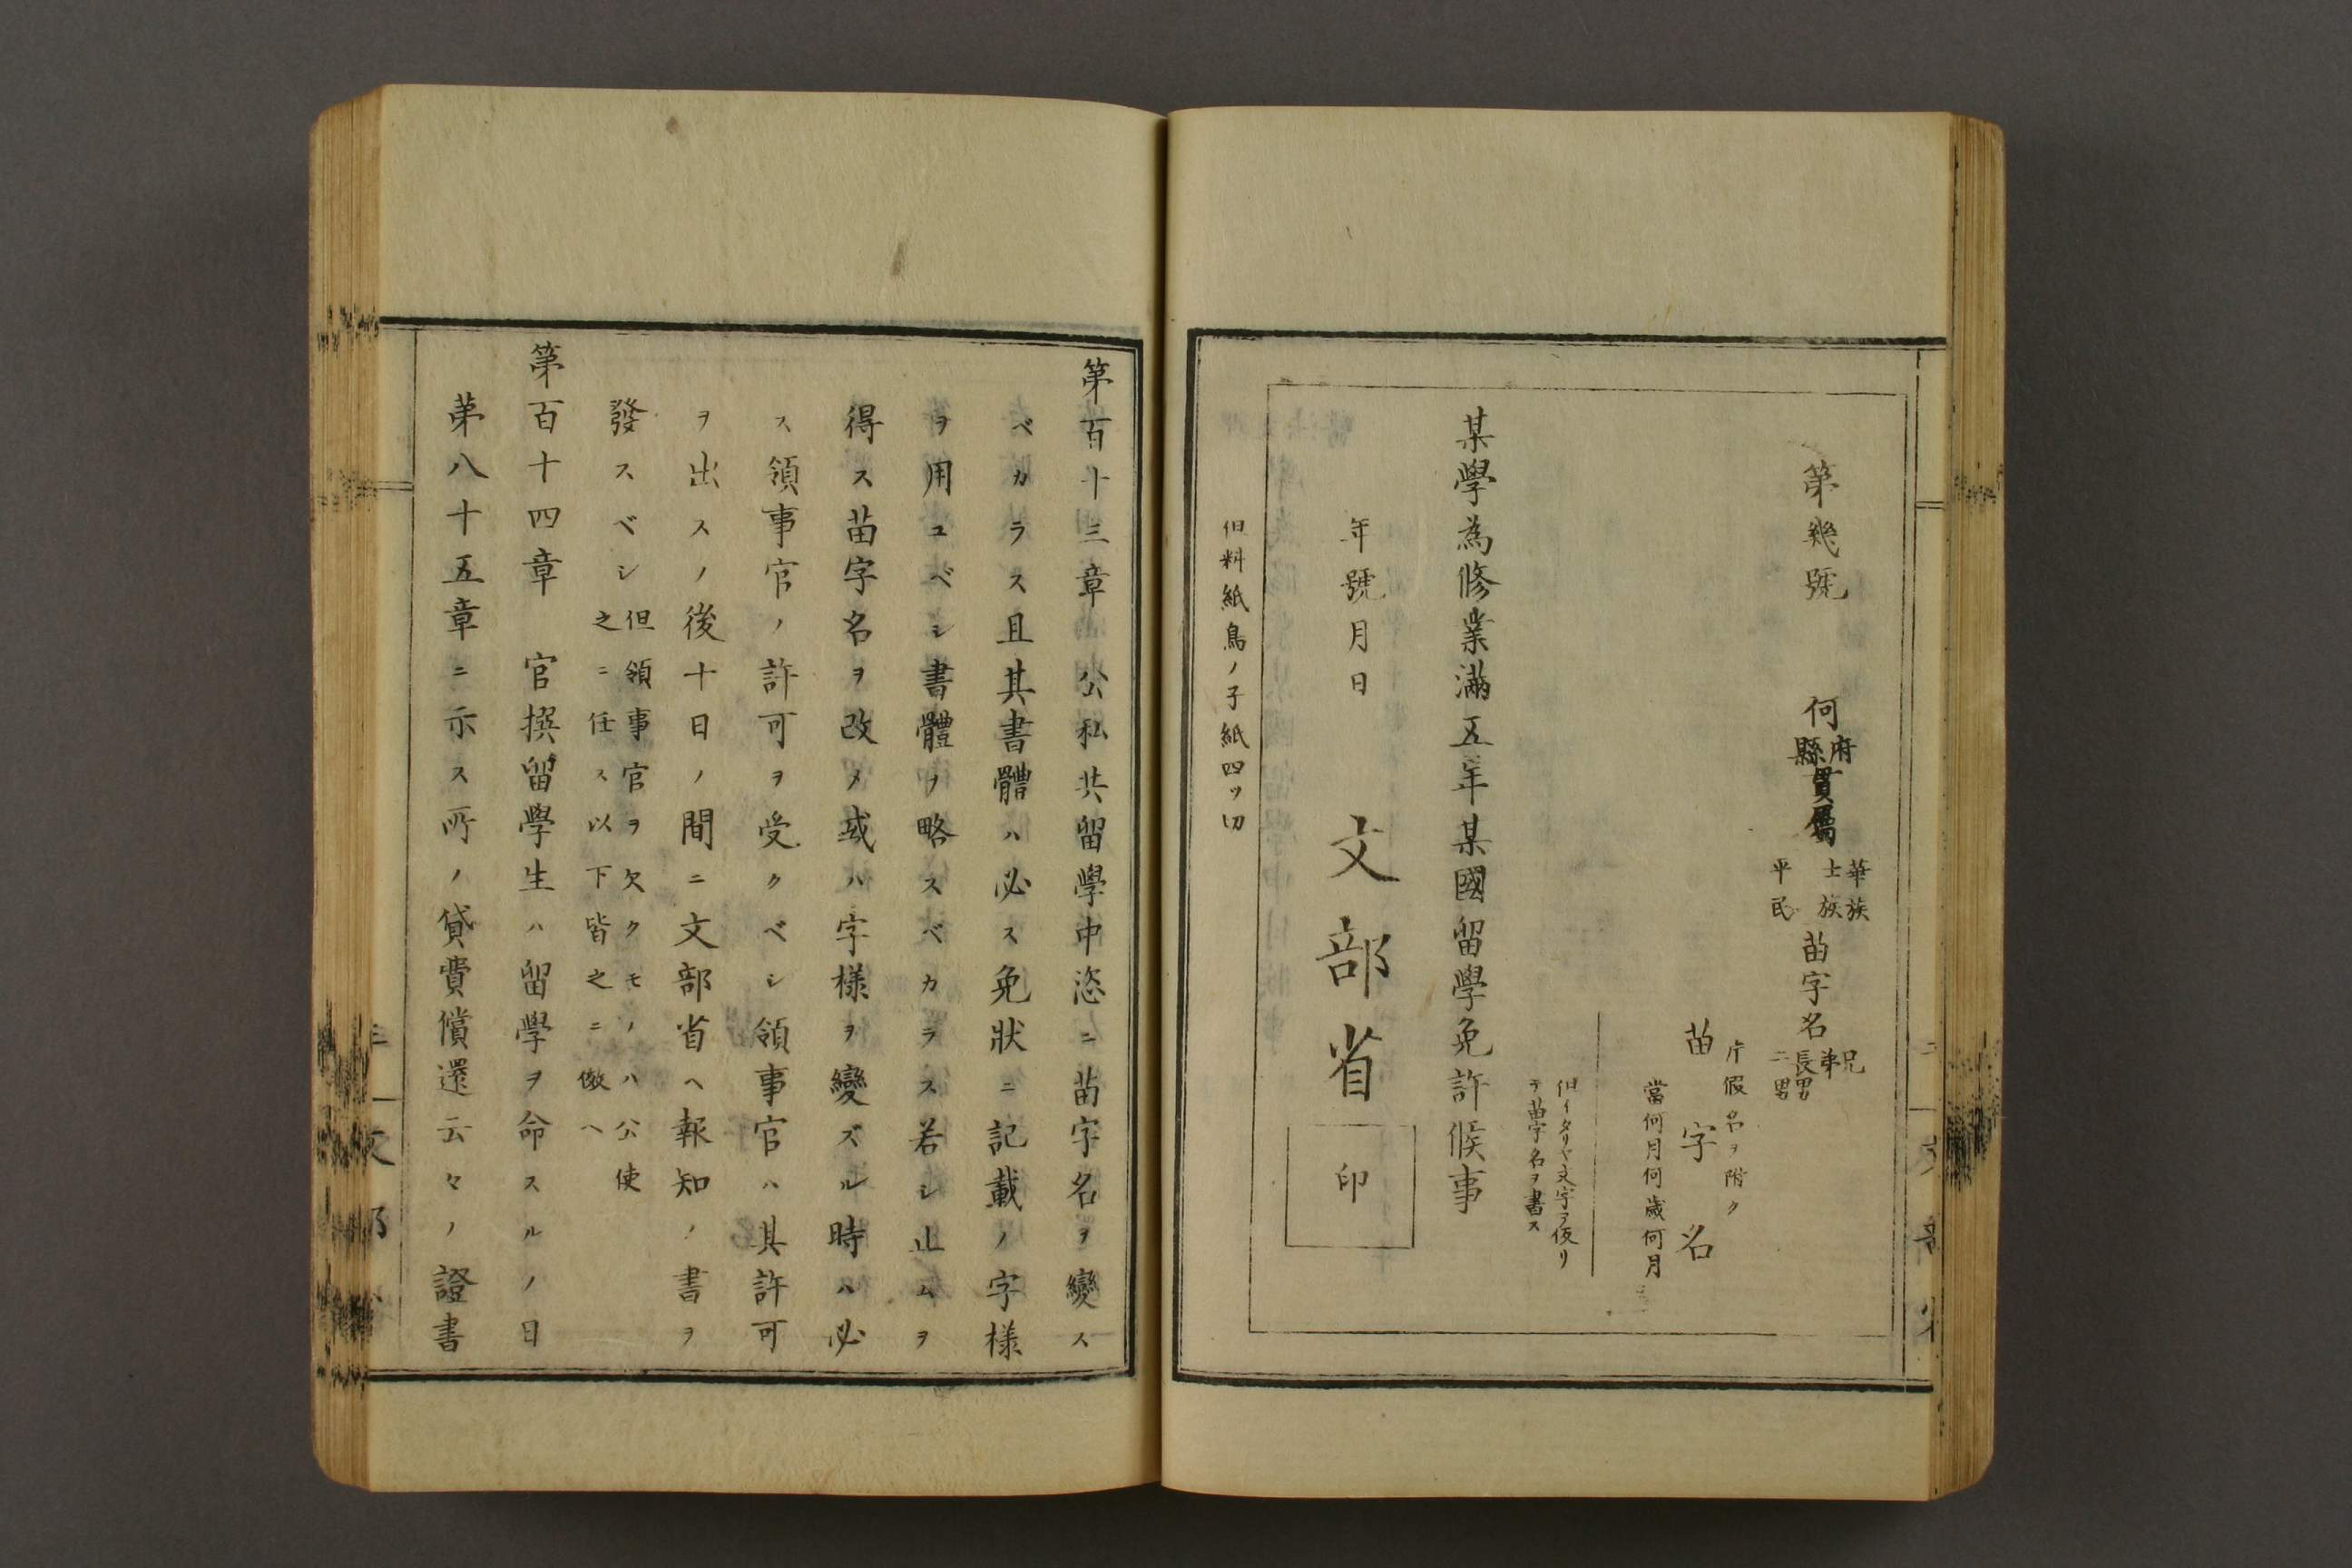 第幾號
何府縣貫屬
華族
士族
平民
苗字名
兄
弟
長男
二男
片假名ヲ附ク
苗字名
當何月何歲何月
但イタリヤ文字ヲ仮リ
テ苗字名ヲ書ス
某學為修業滿五年某國留學免許候事
年號月日
文部省
印
但料紙鳥ノ子紙四ッ切
第百十三章 公私共留學中恣ニ苗字名ヲ變ス
ベカラス且其書體ハ必ス免狀ニ記載ノ字樣
ヲ用ユベシ書體ヲ略スベカラス若シ止ムヲ
得ス苗字名ヲ改メ或ハ字樣ヲ變ズル時ハ必
ス領事官ノ許可ヲ受クベシ領事官ハ其許可
ヲ出スノ後十日ノ間ニ文部省ヘ報知ノ書ヲ
發スベシ
但領事官ヲ欠クモノハ公使
之ニ任ス以下皆之ニ倣ヘ
第百十四章 官撰留學生ハ留學ヲ命スルノ日
第八十五章ニ示ス所ノ貸費償還云々ノ證書